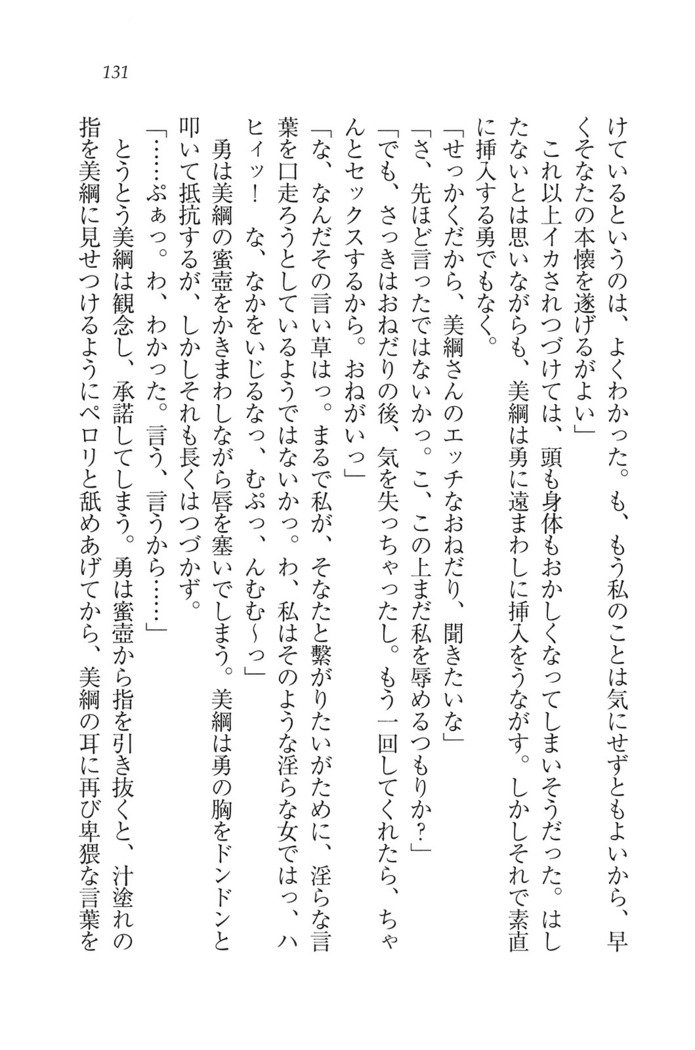 131
けているというのは、よくわかった。も、もう私のことは気にせずともよいから、早
くそなたの本懐を遂げるがよい」
これ以上イカされつづけては、頭も身体もおかしくなってしまいそうだった。はし
たないとは思いながらも、美綱は勇に遠まわしに挿入をうながす。しかしそれで素直
に挿入する勇でもなく。
「せっかくだから、美綱さんのエッチなおねだり、聞きたいな」
「さ、先ほど言ったではないかっ。こ、この上まだ私を辱めるつもりか?」
「でも、さっきはおねだりの後、気を失っちゃったし。もう一回してくれたら、ちゃ
んとセックスするから。おねがいっ」
「な、なんだその言い草はっ。まるで私が、そなたと繋がりたいがために、淫らな言
葉を口走ろうとしているようではないかっ。わ、私はそのような淫らな女ではっ、ハ
ヒィッ! な、なかをいじるなっ、むぷっ、んむむ~っ」
勇は美綱の蜜壺をかきまわしながら唇を塞いでしまう。美綱は勇の胸をドンドンと
叩いて抵抗するが、しかしそれも長くはつづかず。
「……ぷぁっ。わ、わかった。言う、言うから……」
とうとう美綱は観念し、承諾してしまう。勇は蜜壺から指を引き抜くと、汁塗れの
指を美綱に見せつけるようにペロリと舐めあげてから、美綱の耳に再び卑猥な言葉を